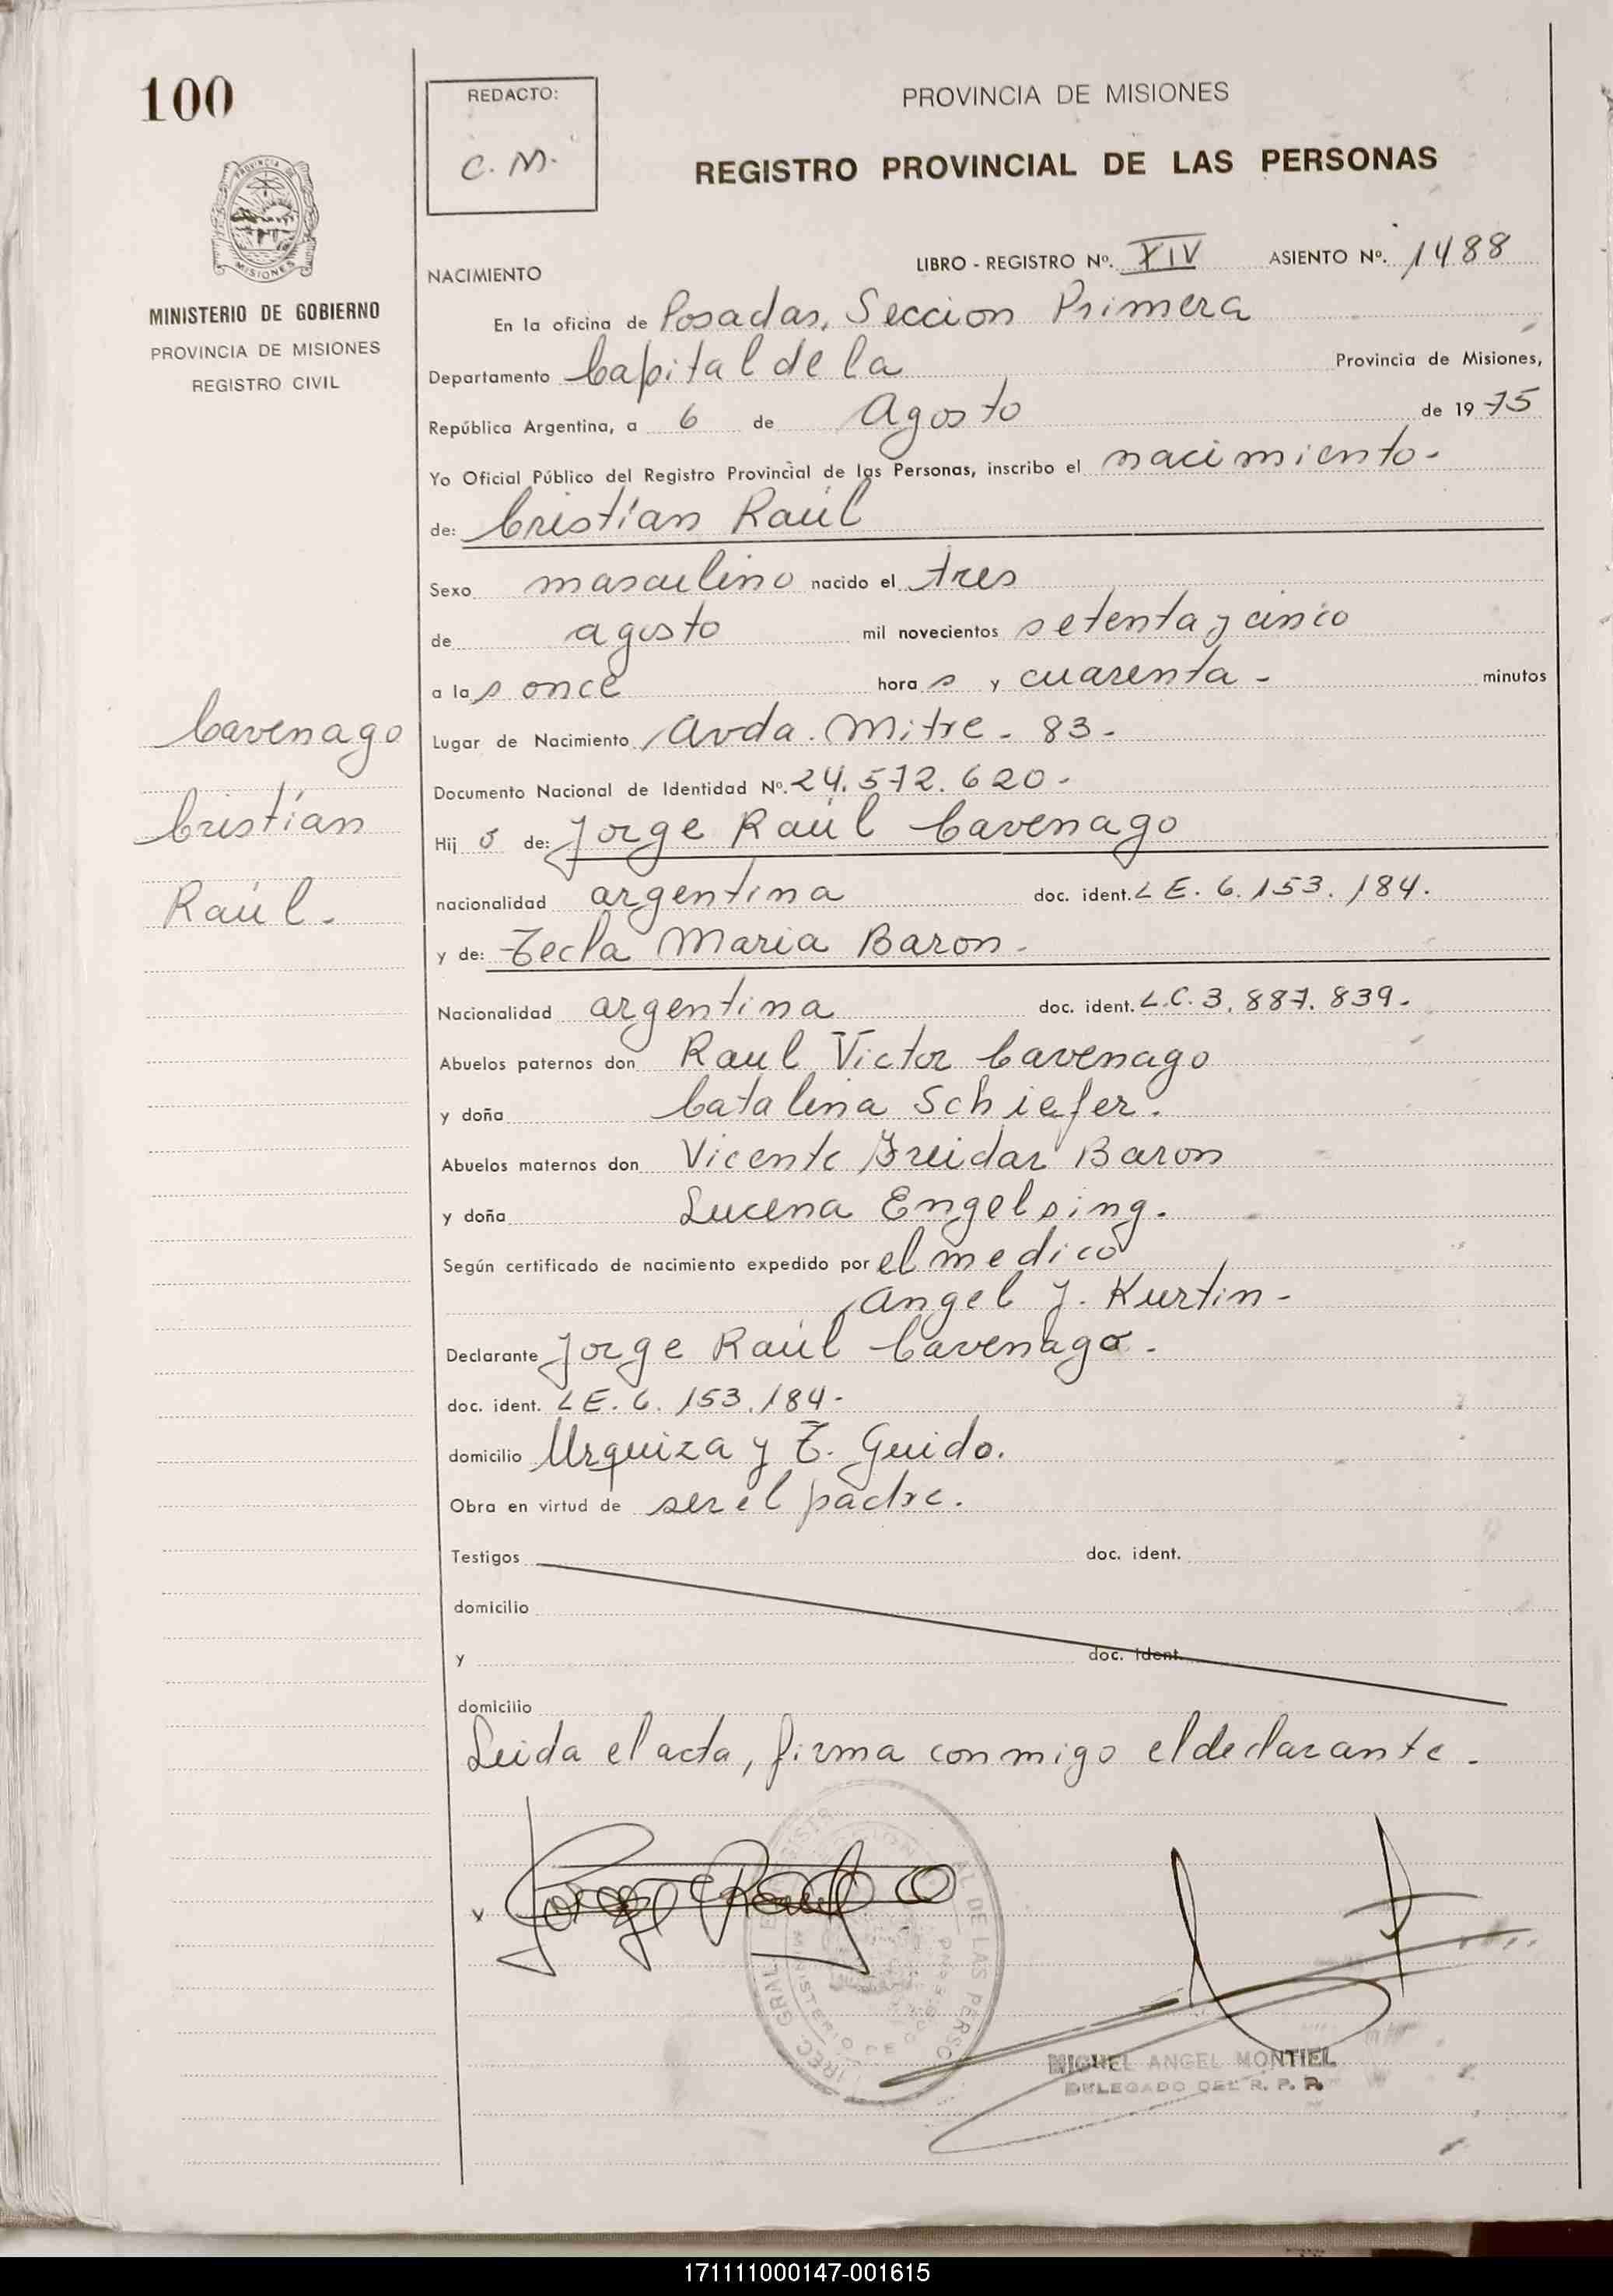 100
REDACTO:
C. M.
PROVINCIA DE MISIONES
REGISTRO PROVINCIAL DE LAS PERSONAS
PROVINCIA DE
MISIONES
MINISTERIO DE GOBIERNO
PROVINCIA DE MISIONES
REGISTRO CIVIL
NACIMIENTO LIBRO - REGISTRO Nº. XIV ASIENTO Nº. 1488
En la oficina de Posadas, Seccion Primera
Departamento Capital de la Provincia de Misiones,
República Argentina, a 6 de Agosto de 1975
Yo Oficial Público del Registro Provincial de las Personas, inscribo el nacimiento-
de: Cristían Raúl
Sexo masculino nacido el tres
de agosto mil novecientos setenta y cinco
a las once horas y cuarenta - minutos
Cavenago
Cristían
Raúl.
Lugar de Nacimiento Avda. Mitre - 83 -
Documento Nacional de Identidad Nº. 24.572.620-
Hijo de: Jorge Raúl Cavenago
nacionalidad argentina doc. ident. L E. 6.153.184.
y de: Tecla Maria Baron.
Nacionalidad argentina doc. ident. L.C. 3.887.839.
Abuelos paternos don Raul Victor Cavenago
y doña Catalina Schiefer.
Abuelos maternos don Vicente Baron
y doña Lucena Engelsing.
Según certificado de nacimiento expedido por el medico
Angel J. Kurtin-
Declarante Jorge Raúl Cavenago.
doc. ident. L E. 6.153.184-
domicilio Urquiza y T. Guido.
Obra en virtud de ser el padre.
Testigos doc. ident.
domicilio
y doc. ident.
domicilio
Leida el acta, firma conmigo el declarante.
Jorge Raul
MIGUEL ANGEL MONTIEL
DELEGADO DEL R. P. P.
171111000147-001615